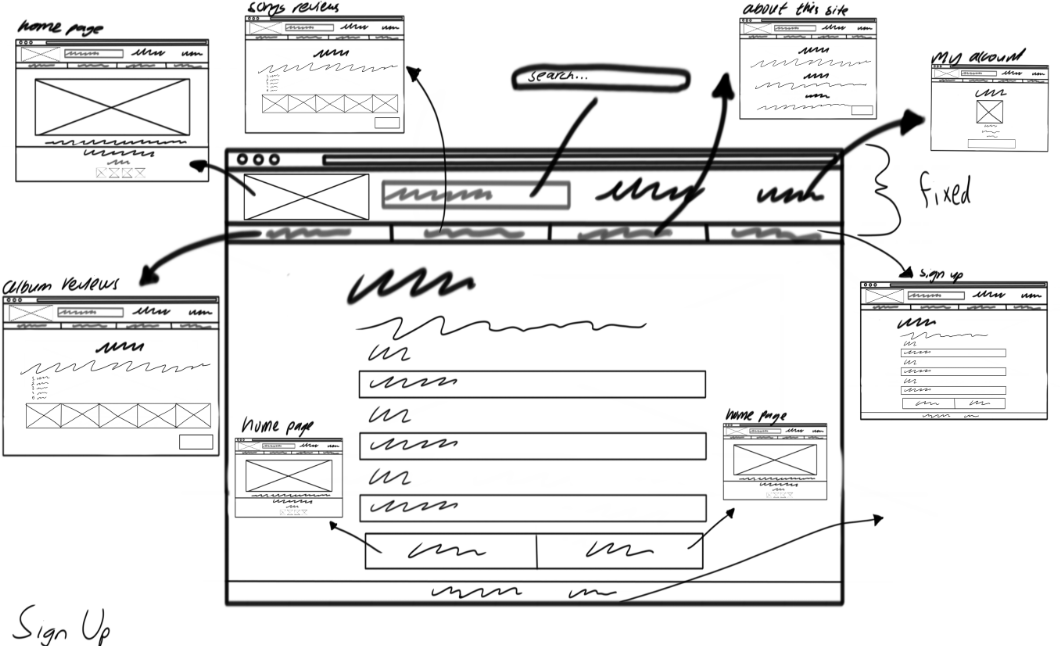 home page
songs reviews
about this site
My account
search...
fixed
album reviews
sign up
home page
home page
Sign Up